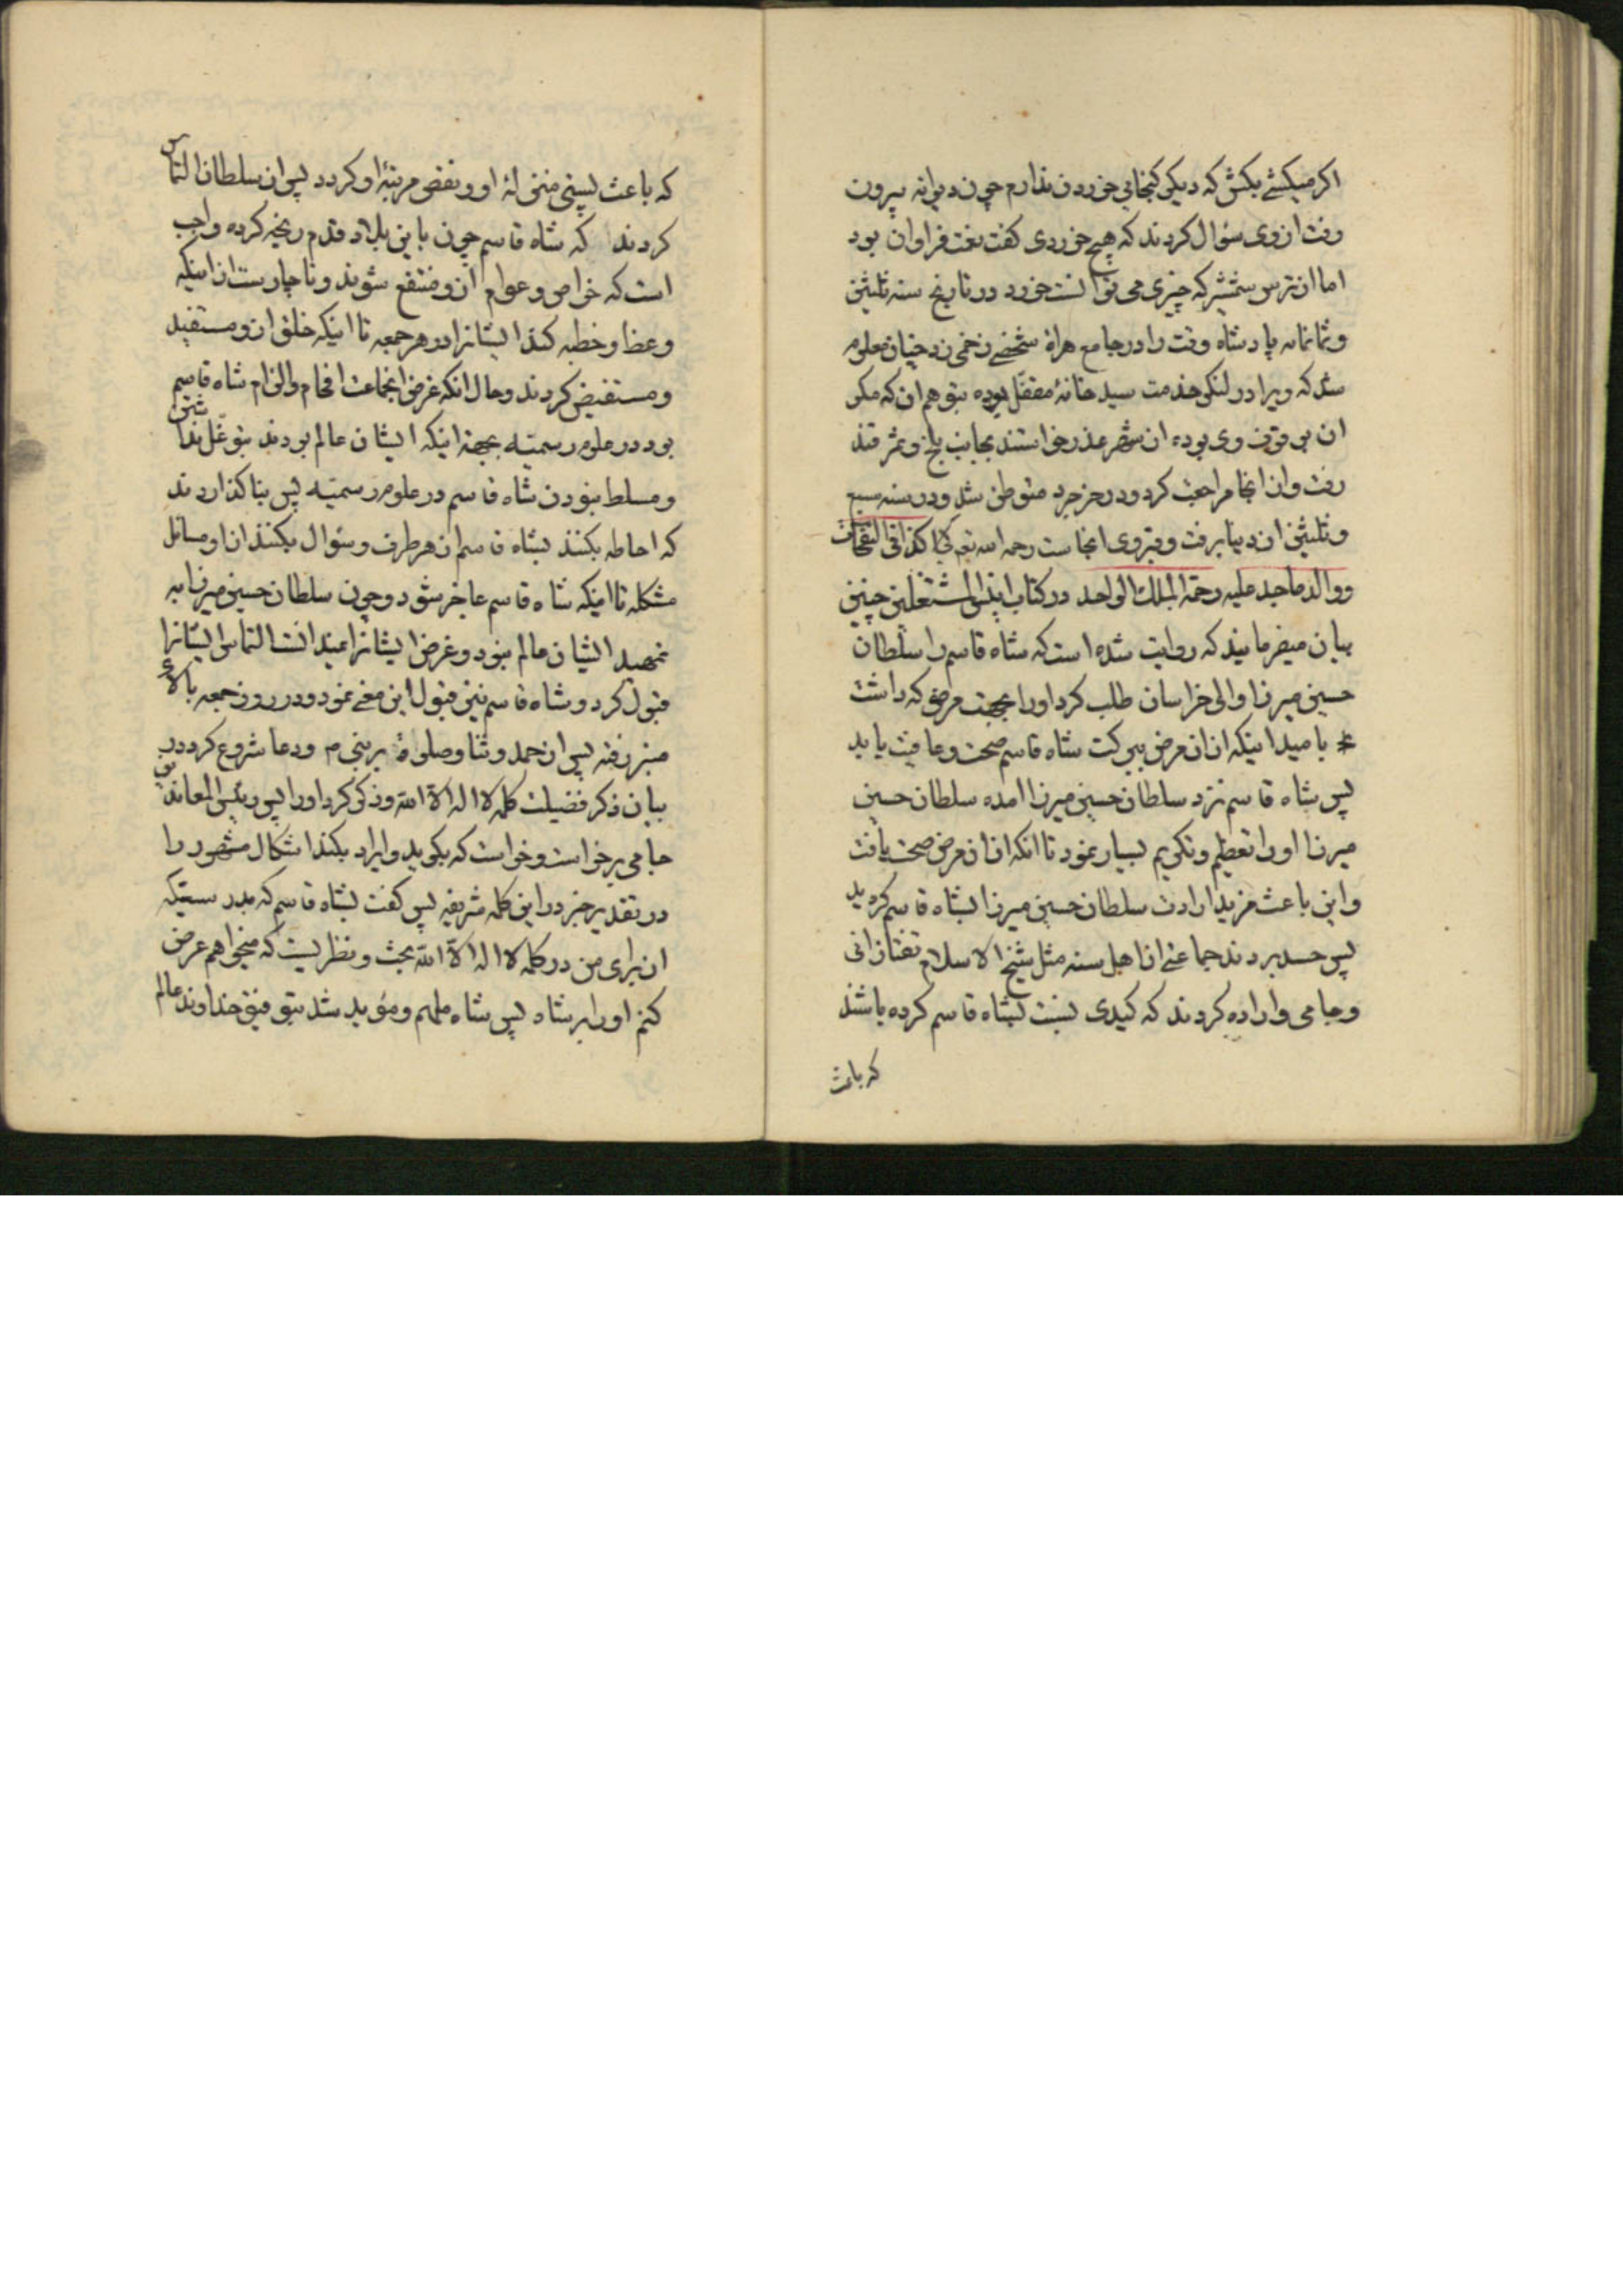 اکر میکشے بکش که دیکر کنجایی خوردن ندارم چون دیوانه بیرون
رفت از وی سؤال کردند که هیچ خوردی کفت نعت فراوان بود
اما از ترس شمشیر که چیزی می توانست خورد در تاریخ سنه ثلثین
وثمانمائه پادشاه وقت را در جامع هراة شخصے زخمی زد چنان معلوم
شد که ویرا در لنکر خدمت سید خانهٔ مقفّل بوده بتوهم ان که مکر
ان بی وقوف وی بوده ان شهر عذر خواستند بجانب بلخ و سمرقند
رفت و از انجا مراجعت کرد و در خرجرد متوطن شد و در سنه سبع
و ثلثین از دنیا برفت و قبر وی انجاست رحمه الله تعالی کذا فی النفحات
و والد ماجد علیه رحمة الملك الواحد در کتاب انیس المشتغلین چنین
بیان میفرمایند که روایت شده است که شاه قاسم را سلطان
حسین میرزا والی خراسان طلب کرد او را بجهت مرضی که داشت
بامید اینکه از ان مرض ببرکت شاه قاسم صحت و عافیت یابد
پس شاه قاسم نزد سلطان حسین میرزا امده سلطان حسین
میرزا او را تعظیم و تکریم بسیار نمود تا انکه از ان مرض صحت یافت
و این باعث مزید ارادت سلطان حسین میرزا بشاه قاسم کردید
پس حسد بردند جماعتے از اهل سنه مثل شیخ الاسلام تفتازانی
و جامی و اراده کردند که کیدی نسبت بشاه قاسم کرده باشند
که باعث
که باعث پستی منزلهٔ او و نقص مرتبهٔ او کردد پس از سلطان التماس
کردند که شاه قاسم چون باین بلاد قدم رنجه کرده واجب
است که خواص و عوام از و منتفع شوند و ناچار ست از اینکه
وعظ و خطبه کند ایشانرا در هر جمعه تا اینکه خلق از و مستفید
و مستفیض کردند و حال انکه غرض انجماعت افحام و الزام شاه قاسم
بود در علوم رسمیّه بجهة اینکه ایشان عالم بودند بتوغّل نداشتن
و مسلط نبودن شاه قاسم در علوم رسمیّه پس بنا کذاردند
که احاطه بکنند بشاه قاسم از هر طرف و سؤال بکنند از او مسائل
مشکله تا اینکه شاه قاسم عاجز شود و چون سلطان حسین میرزا به
تمهید ایشان عالم نبود و غرض ایشانرا نمیدانست التماس ایشانرا
قبول کرد و شاه قاسم نیز قبول این معنے نمود و در روز جمعه بالای
منبر رفته پس از حمد و ثنا و صلوة بر نبی م و دعا شروع کرد در
بیان ذکر فضیلت کلمه لا اله الا الله و ذکر کرد او را پس رئیس المعاندین
جامی برخواست و خواست که بکوید و ایراد بکند اشکال مشهور را
در تقدیر خبر در این کلمه شریفه پس کفت بشاه قاسم که بدرستیکه
از برای من در کلمه لا اله الا الله بحث و نظریست که میخواهم عرض
کنم او را بر شاه پس شاه ملهم و مؤید شد بتوفیق خداوند عالم